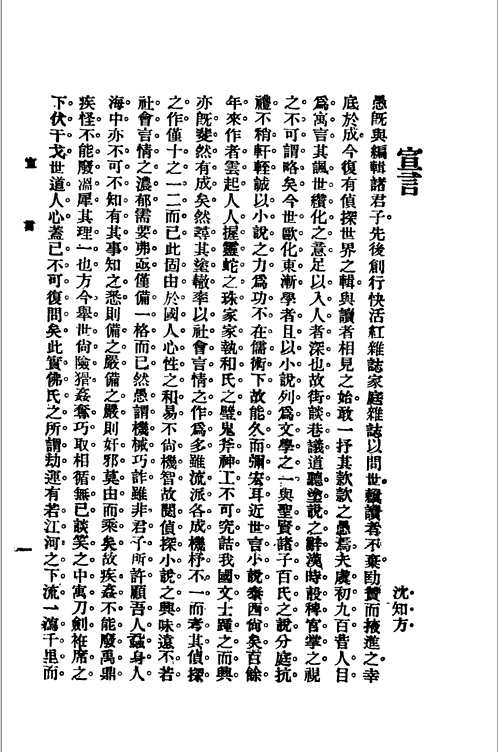 宣言
沈知方
愚既與編輯諸君子先後創行快活紅雜誌家庭雜誌以問世賴讀者不棄勁贊而掖進之幸
底於成今復有偵探世界之輯與讀者相見之始敢一抒其款款之愚焉夫虞初九百昔人目
爲寓言其諷世化之意足以入人者深也故街談巷議道聽塗說之辭漢時設稗官掌之視
之不可謂略矣今世歐化東漸學者且以小說列爲文學之一與聖賢諸子百氏之說分庭抗
禮不稍軒輊誠以小說之力爲功不在儒術下故能久而彌宏耳近世言小說泰西尙矣百餘
年來作者雲起人人握靈蛇之珠家家執和氏之璧鬼斧神工不可究詰我國文士踵之而興
亦旣斐然有成矣然尋其塗轍率以社會言情之作爲多雖流派各成機杼不一而考其偵探
之作僅十之一二而已此固由於國人心性之和易不尙機智故閱偵探小說之興味遠不若
社會言情之濃郁需要弗亟僅備一格而已然愚謂機械巧詐雖非君子所許顧吾人身人
海中亦不可不知有其事知之悉則備之嚴備之嚴則奸邪莫由而乘矣故疾姦不能廢禹鼎
疾怪不能廢溫犀其理一也方今舉世尙險猾姦奪巧取相循無已談笑之中寓刀劍袵席之
下伏干戈世道人心蓋已不可復問矣此實佛氏之所謂劫運有若江河之下流一瀉千里而
宣言
一